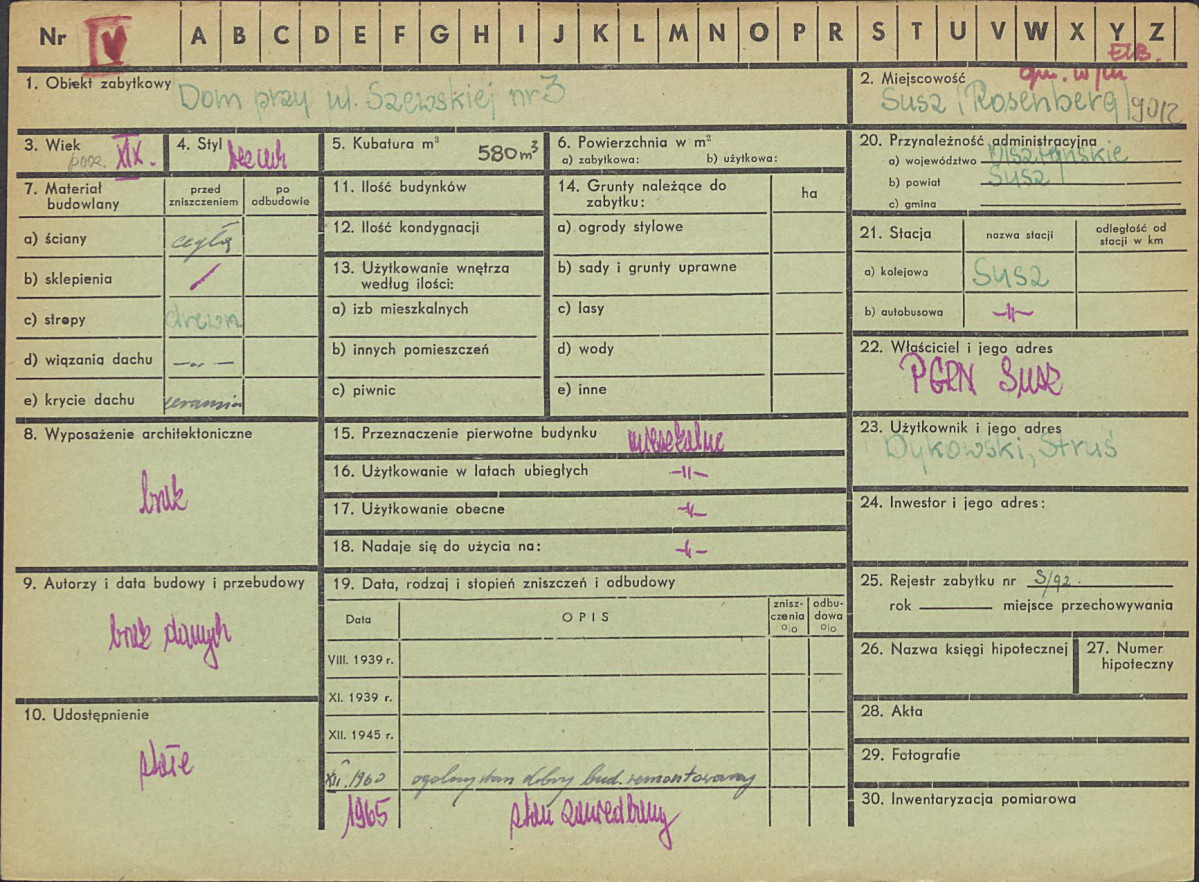 Nr V A B C D E F G H I J K L M N O P R S T U V W X Y Z
ELB.
1. Obiekt zabytkowy Dom przy ul. Szewskiej nr 3
2. Miejscowość gm. w/m
Susz /Rosenberg/
3. Wiek pocz. XIX.
4. Styl bez cech
5. Kubatura m³ 580 m³
6. Powierzchnia w m²
a) zabytkowa: b) użytkowa:
7. Materiał budowlany
przed zniszczeniem
po odbudowie
a) ściany cegła
b) sklepienia /
c) stropy drewn
d) wiązania dachu —„—
e) krycie dachu ceramika
8. Wyposażenie architektoniczne
brak
9. Autorzy i data budowy i przebudowy
brak danych
10. Udostępnienie
stałe
11. Ilość budynków
12. Ilość kondygnacji
13. Użytkowanie wnętrza
według ilości:
a) izb mieszkalnych
b) innych pomieszczeń
c) piwnic
14. Grunty należące do
zabytku:
ha
a) ogrody stylowe
b) sady i grunty uprawne
c) lasy
d) wody
e) inne
15. Przeznaczenie pierwotne budynku mieszkalne
16. Użytkowanie w latach ubiegłych -||-
17. Użytkowanie obecne -||-
18. Nadaje się do użycia na: -||-
19. Data, rodzaj i stopień zniszczeń i odbudowy
Data
OPIS
znisz-
czenia
%
odbu-
dowa
%
VIII. 1939 r.
XI. 1939 r.
XII. 1945 r.
XII. 1960 ogólny stan dobry bud. remontowany
1965 stan zaniedbany
20. Przynależność administracyjna
a) województwo Olsztyńskie
b) powiat Susz
c) gmina
21. Stacja
nazwa stacji
odległość od
stacji w km
a) kolejowa Susz
b) autobusowa -||-
22. Właściciel i jego adres
PGRN Susz
23. Użytkownik i jego adres
Dykowski, Struś
24. Inwestor i jego adres:
25. Rejestr zabytku nr S/92.
rok miejsce przechowywania
26. Nazwa księgi hipotecznej
27. Numer
hipoteczny
28. Akta
29. Fotografie
30. Inwentaryzacja pomiarowa